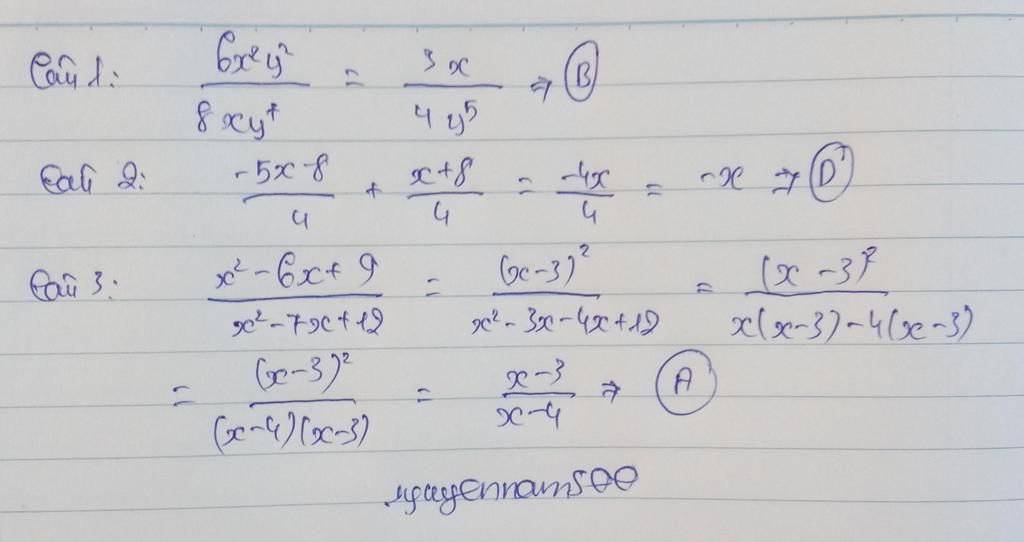 Câu 1: 6x²y²/8xy⁷ = 3x/4y⁵ ⇒ B
Câu 2: -5x-8/4 + x+8/4 = -4x/4 = -x ⇒ D
Câu 3: x²-6x+9/x²-7x+12 = (x-3)²/x²-3x-4x+12 = (x-3)²/x(x-3)-4(x-3)
= (x-3)²/(x-4)(x-3) = x-3/x-4 ⇒ A
nguyennam500